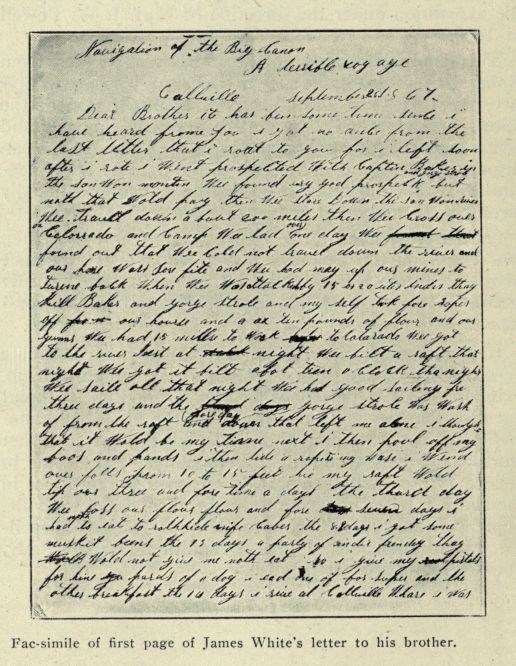 Navigation of the Big Canon
A terrible voyage
Callville September 26 1867
Dear Brother it has ben some time senCe i
have heard frome you i got no ance from the
last letter that i roat to you for i left soon
after i rote i Went prospected With Captin Baker
the son Won montin Wee found vry god prospCk but
noth that Wold pay then Wee stare Down the son Won River
Wee travel down a bout 200 miles then Wee Cross over
on Colorado and Camp Wee lad over one day Wee found that
found out that Wee Cold not travel down the river and
our hose Wass Sore fite and Wee had may up our mines to
turene back When Wee Was attacked by 15 or 20 utes indes they
kill Baker and gorge strole and my self took fore ropes
off from our hourse and a ax ten pounds of flour and our
gunns Wee had 15 milles to Wak to Colarado Wee got
to the river Jest at night Wee bilt a raft that
night Wee got it bilt abot tien o Clock tha night
Wee saile all that night Wee had good sailing fro
three days and the fore day gorge strole Was Wash
of from the raft and down that left me alone i though
that it Wold be my time next i then poul off my
boos and pands i then tide a rope to my Wase i Wend
over falls from 10 to 15 feet hie my raft Wold
tip over three and fore time a days the thurd day
Wee loss our flour flour and fore seven days i
had noth to eat to rathhide nife Caber the 8 days i got some
muskit beens the 13 days a party of indes frendey thay
Wold not give me noth eat so i give my pistols
for hine pards of a dog i ead one of for super and the
other breakfast the 14 days i rive at Callville Whare i Was
Fac-simile of first page of James White's letter to his brother.